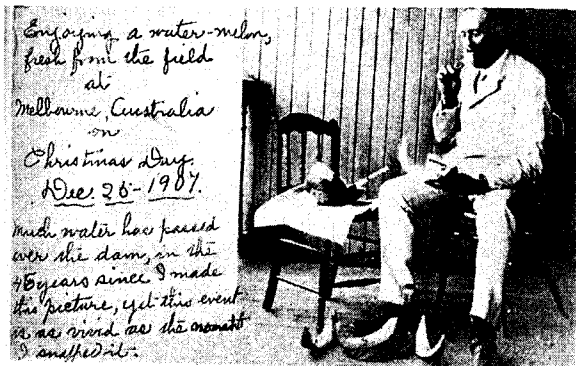 Enjoying a water-melon,
fresh from the field
at
Melbourne, Australia
on
Christmas Day.
Dec. 25-1907.
Much water has passed
over the dam, in the
45 years since I made
this picture, yet this event
is as vivid as the moment
I snapped it.